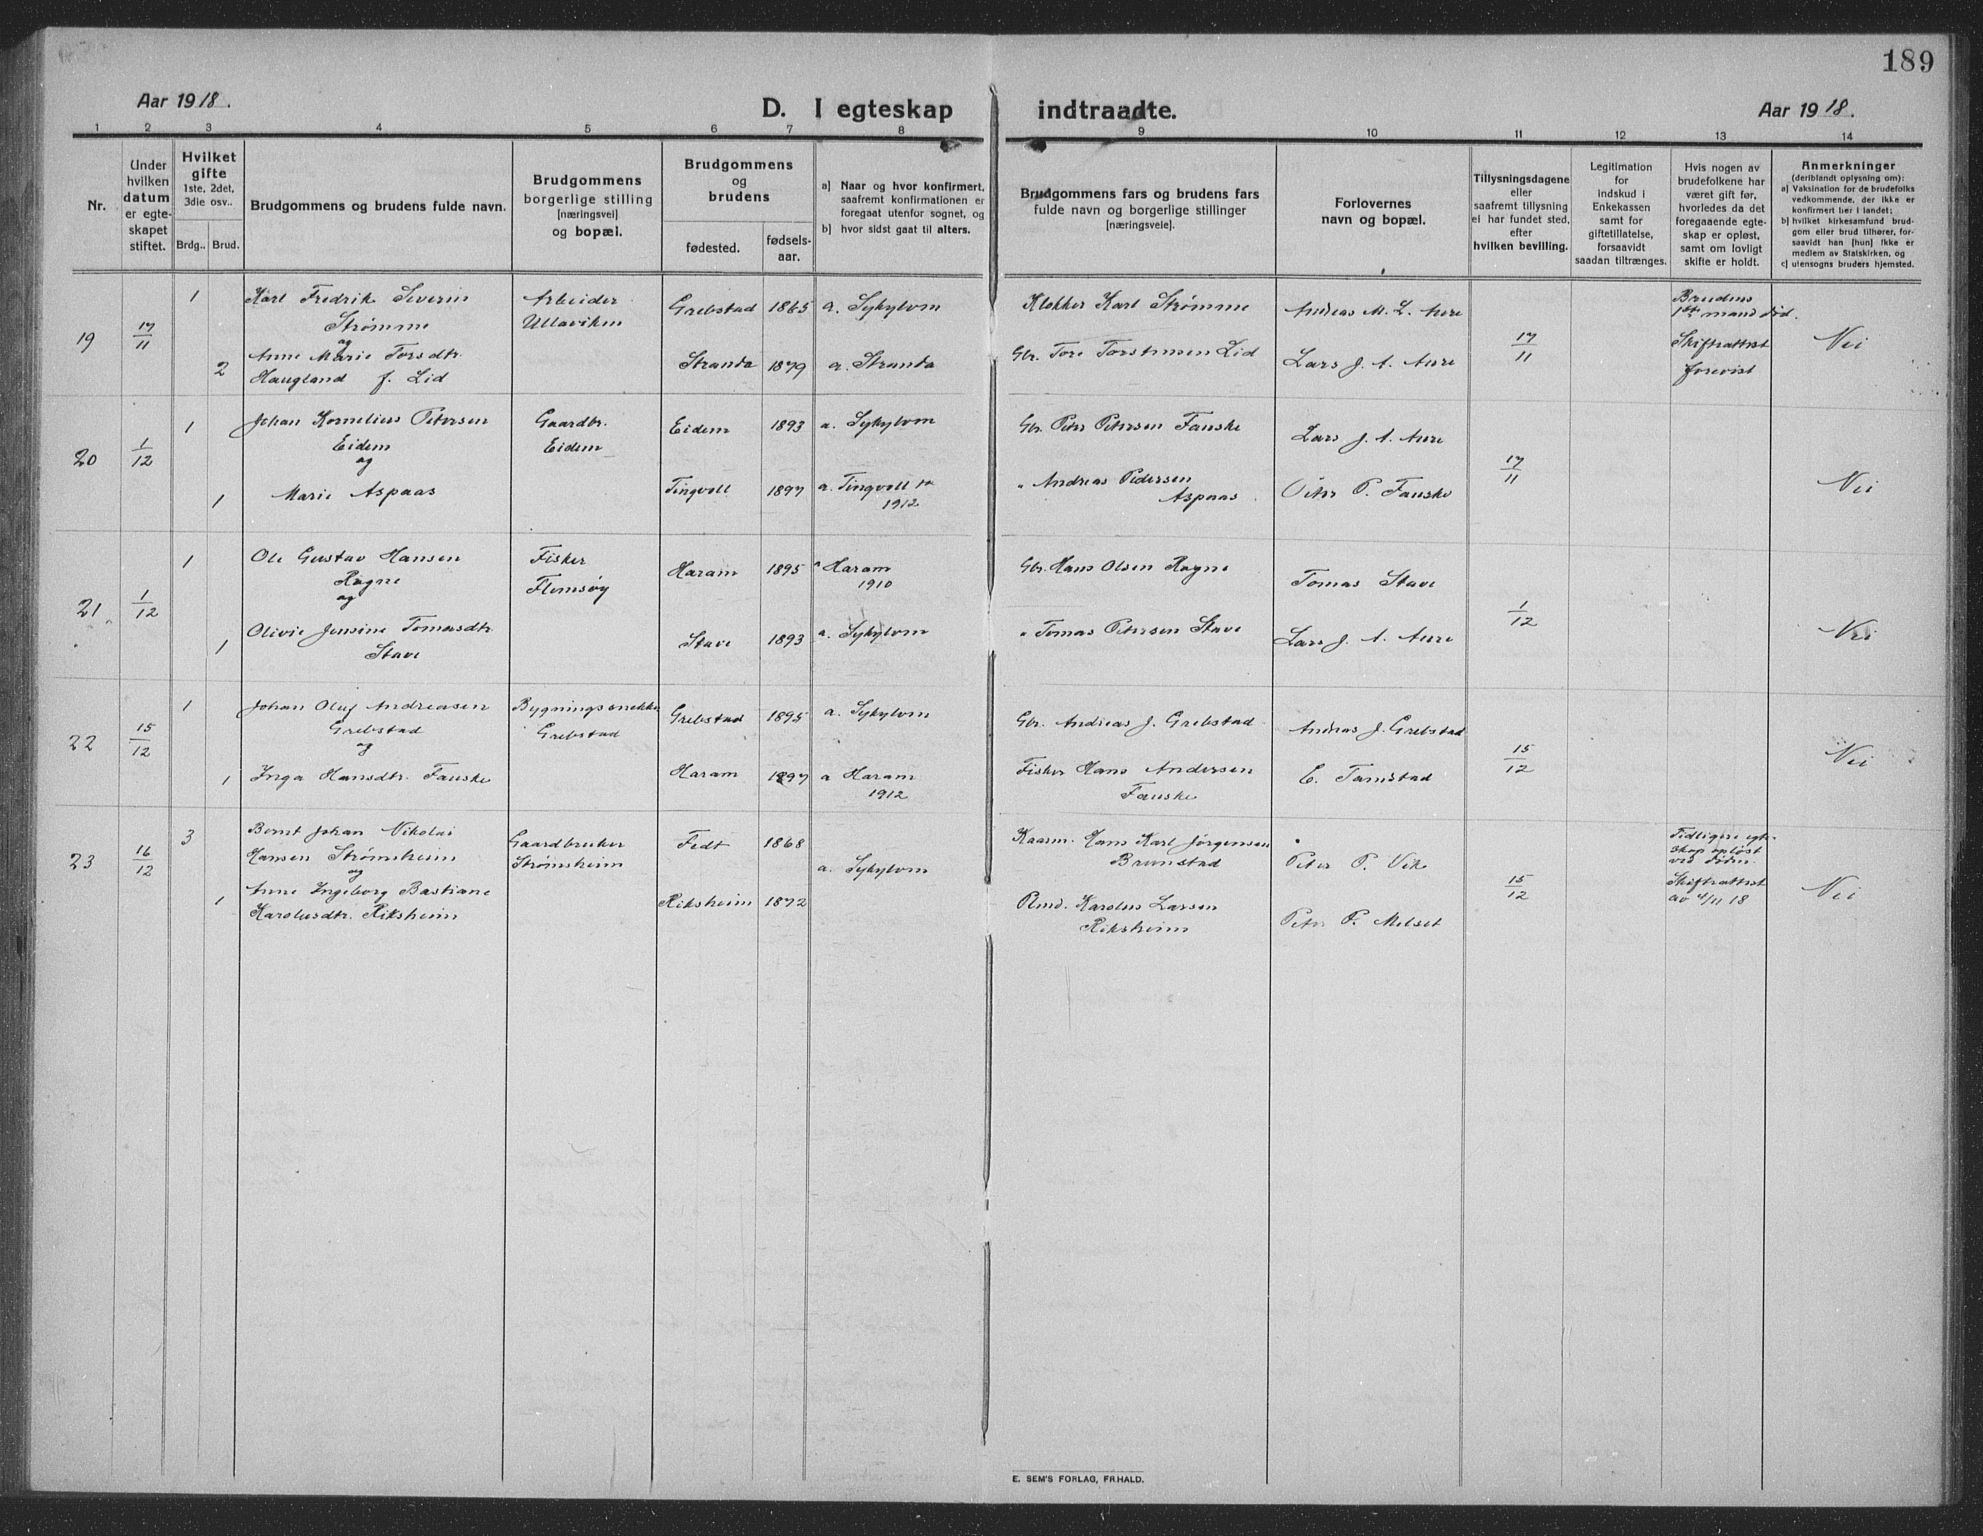 189
Aar 1918.
D. I egteskap indtraadte.
Aar 1918.
1 2 3 4 5 6 7 8 9 10 11 12 13 14
Nr.
Under
hvilken
datum
er egte-
skapet
stiftet.
Hvilket
gifte
1ste, 2det,
3die osv..
Brdg..
Brud.
Brudgommens og brudens fulde navn.
Brudgommens
borgerlige stilling
[næringsvei]
og bopæl.
Brudgommens
og
brudens
fødested.
fødsels-
aar.
a] Naar og hvor konfirmert,
saafremt konfirmationen er
foregaat utenfor sognet, og
b] hvor sidst gaat til alters.
Brudgommens fars og brudens fars
fulde navn og borgerlige stillinger
[næringsveie].
Forlovernes
navn og bopæl.
Tillysningsdagene
eller
saafremt tillysning
ei har fundet sted,
efter
hvilken bevilling.
Legitimation
for
indskud i
Enkekassen
samt for
giftetillatelse,
forsaavidt
saadan tiltrænges.
Hvis nogen av
brudefolkene har
været gift før,
hvorledes da det
foregaaende egte-
skap er opløst,
samt om lovligt
skifte er holdt.
Anmerkninger
(deriblandt oplysning om):
a] Vaksination for de brudefolks
vedkommende, der ikke er
konfirmert her i landet;
b] hvilket kirkesamfund brud-
gom eller brud tilhører, for-
saavidt han [hun] ikke er
medlem av Statskirken, og
c] utensogns bruders hjemsted.
19
17/11
1
Karl Fredrik Severin
Strømme
og
2
Anne Marie Torsdtr.
Haugland f. Lid
Arbeider
Ullaviken
Grebstad 1865 a. Sykylven
Stranda 1879 a. Stranda
Klokker Karl Strømme
Gbr. Tore Torstensen Lid
Andreas M. L. Aure
Lars J. A. Aure
17/11
Brudens
1ste mand død.
Skifteattest
forevist
Nei
20
1/12
1
Johan Kornelius Petersen
Eidem
og
1
Marie Aspaas
Gaardbr.
Eidem
Eidem 1893 a. Sykylven
Tingvoll 1897 a. Tingvoll
1912
Gbr. Peter Petersen Fauske
" Andreas Pedersen
Aspaas
Lars J. A. Aure
Peter P. Fauske
17/11
Nei
21
1/12
1
Ole Gustav Hansen
Rogne
og
1
Olivie Jensine Tomasdtr.
Stave
Fisker
Flemsøy
Haram 1895 a Haram
1910
Stave 1893 a. Sykylven
Gbr. Hans Olsen Rogne
" Tomas Petersen Stave
Tomas Stave
Lars J. A. Aure
1/12
Nei
22
15/12
1
Johan Oluf Andreasen
Grebstad
og
1
Inga Hansdtr. Fauske
Bygningssnekker
Grebstad
Grebstad 1895 a. Sykylven
Haram 1897 a Haram
1912
Gbr. Andreas J. Grebstad
Fisker Hans Andersen
Fauske
Andreas J. Grebstad
E. Tamstad
15/12
Nei
23
16/12
3
Bernt Johan Nikolai
Hansen Strømsheim
og
1
Anne Ingeborg Bastiane
Karolusdtr. Riksheim
Gaardbruker
Strømsheim
Fedt 1868
a. Sykylven
Riksheim 1872
Kaarm. Hans Karl Jørgensen
Brunstad
Rmd. Karolus Larsen
Riksheim
Peter P. Vik
Peter P. Melset
15/12
Tidligere egte-
skap opløst
ved døden.
Skifteattest
av 4/11 18
Nei
E. SEM'S FORLAG, FR.HALD.